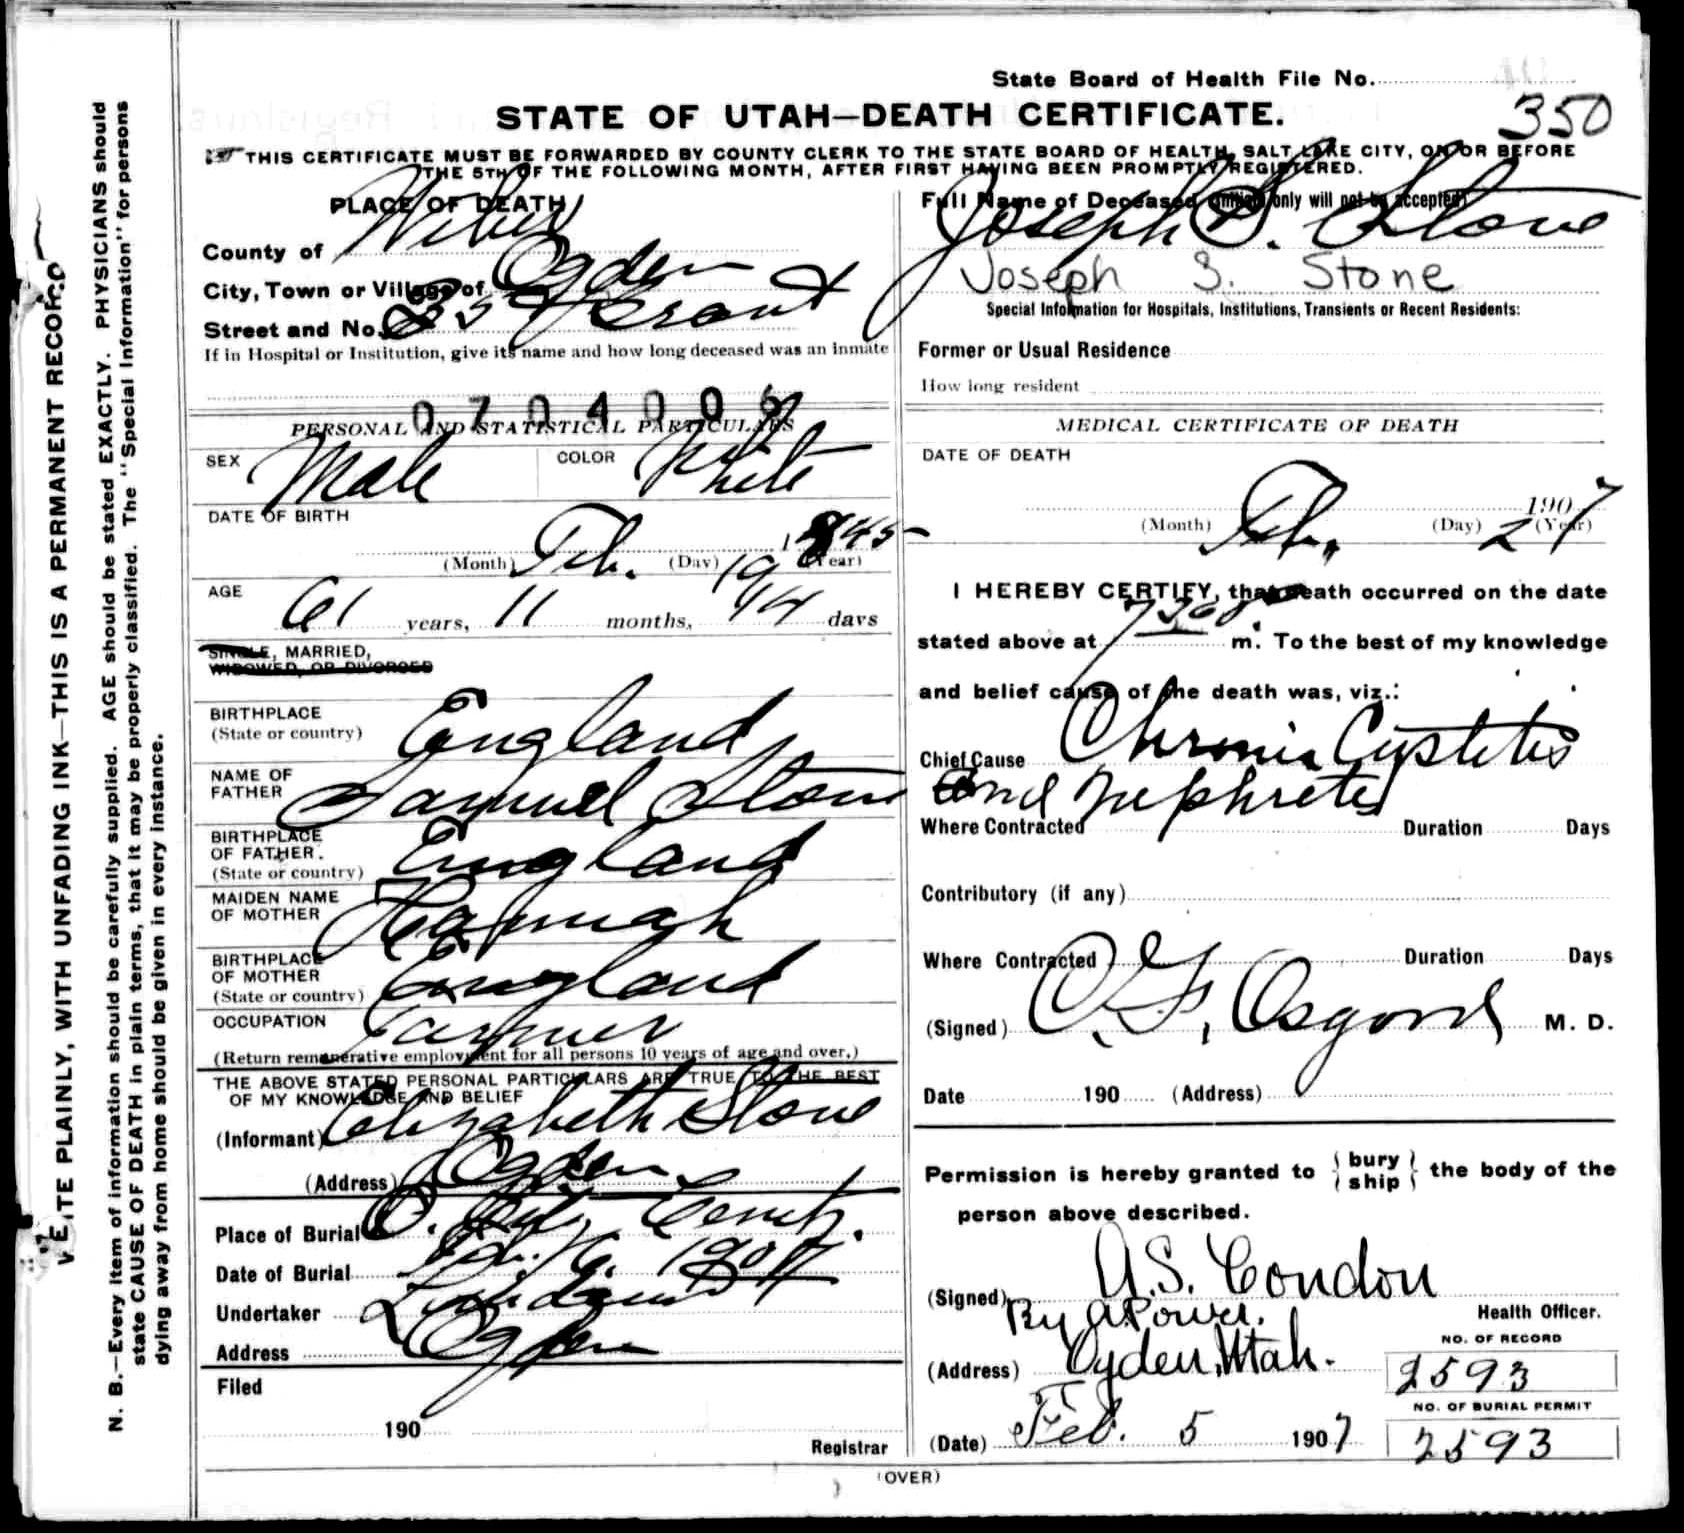 State Board of Health File No.
350
STATE OF UTAH—DEATH CERTIFICATE.
THIS CERTIFICATE MUST BE FORWARDED BY COUNTY CLERK TO THE STATE BOARD OF HEALTH, SALT LAKE CITY, ON OR BEFORE
THE 5TH OF THE FOLLOWING MONTH, AFTER FIRST HAVING BEEN PROMPTLY REGISTERED.
WRITE PLAINLY, WITH UNFADING INK—THIS IS A PERMANENT RECORD
N. B.—Every item of information should be carefully supplied. AGE should be stated EXACTLY. PHYSICIANS should
state CAUSE OF DEATH in plain terms, that it may be properly classified. The "Special Information" for persons
dying away from home should be given in every instance.
PLACE OF DEATH
County of Weber
City, Town or Village of Ogden
Street and No. Grant
If in Hospital or Institution, give its name and how long deceased was an inmate
0704006
PERSONAL AND STATISTICAL PARTICULARS
SEX Male COLOR White
DATE OF BIRTH
(Month) Feb. (Day) 19 1845 (Year)
AGE 61 years, 11 months, 14 days
SINGLE, MARRIED,
WIDOWED, OR DIVORCED
BIRTHPLACE
(State or country) England
NAME OF
FATHER Samuel Stone
BIRTHPLACE
OF FATHER.
(State or country) England
MAIDEN NAME
OF MOTHER Hannah
BIRTHPLACE
OF MOTHER
(State or country) England
OCCUPATION Farmer
(Return remunerative employment for all persons 10 years of age and over.)
THE ABOVE STATED PERSONAL PARTICULARS ARE TRUE TO THE BEST
OF MY KNOWLEDGE AND BELIEF
(Informant) Elizabeth Stone
(Address) Ogden
Place of Burial O. City Cemty.
Date of Burial 6. 1907
Undertaker
Address Ogden
Filed
190
Registrar
Full Name of Deceased (Initials only will not be accepted)
Joseph S. Stone
Joseph S. Stone
Special Information for Hospitals, Institutions, Transients or Recent Residents:
Former or Usual Residence
How long resident
MEDICAL CERTIFICATE OF DEATH
DATE OF DEATH
(Month) Feb. (Day) 2 1907 (Year)
I HEREBY CERTIFY, that death occurred on the date
stated above at m. To the best of my knowledge
and belief cause of the death was, viz.:
Chief Cause Chronic Cystitis
and Nephritis
Where Contracted Duration Days
Contributory (if any)
Where Contracted Duration Days
(Signed) Osgood M. D.
Date 190 (Address)
Permission is hereby granted to bury ship the body of the
person above described.
(Signed) A.S. Condon
By A Power. Health Officer.
(Address) Ogden, Utah.
NO. OF RECORD
2593
NO. OF BURIAL PERMIT
2593
(Date) Feb. 5 1907
(OVER)